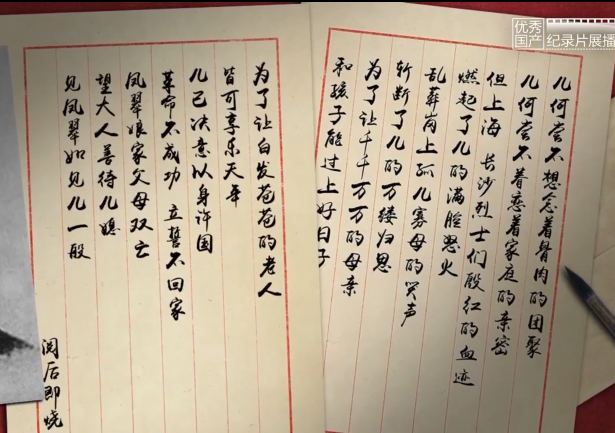 优秀
国产
纪录片展播
儿何尝不想念着骨肉的团聚
儿何尝不着恋着家庭的亲密
但上海 长沙烈士们殷红的血迹
燃起了儿的满腔怒火
乱葬岗上孤儿寡母的哭声
斩断了儿的万缕归思
为了让千千万万的母亲
和孩子能过上好日子
为了让白发苍苍的老人
皆可享乐天年
儿已决意以身许国
革命不成功 立誓不回家
凤翠娘家父母双亡
望大人善待儿媳
见凤翠如见儿一般
阅后即烧